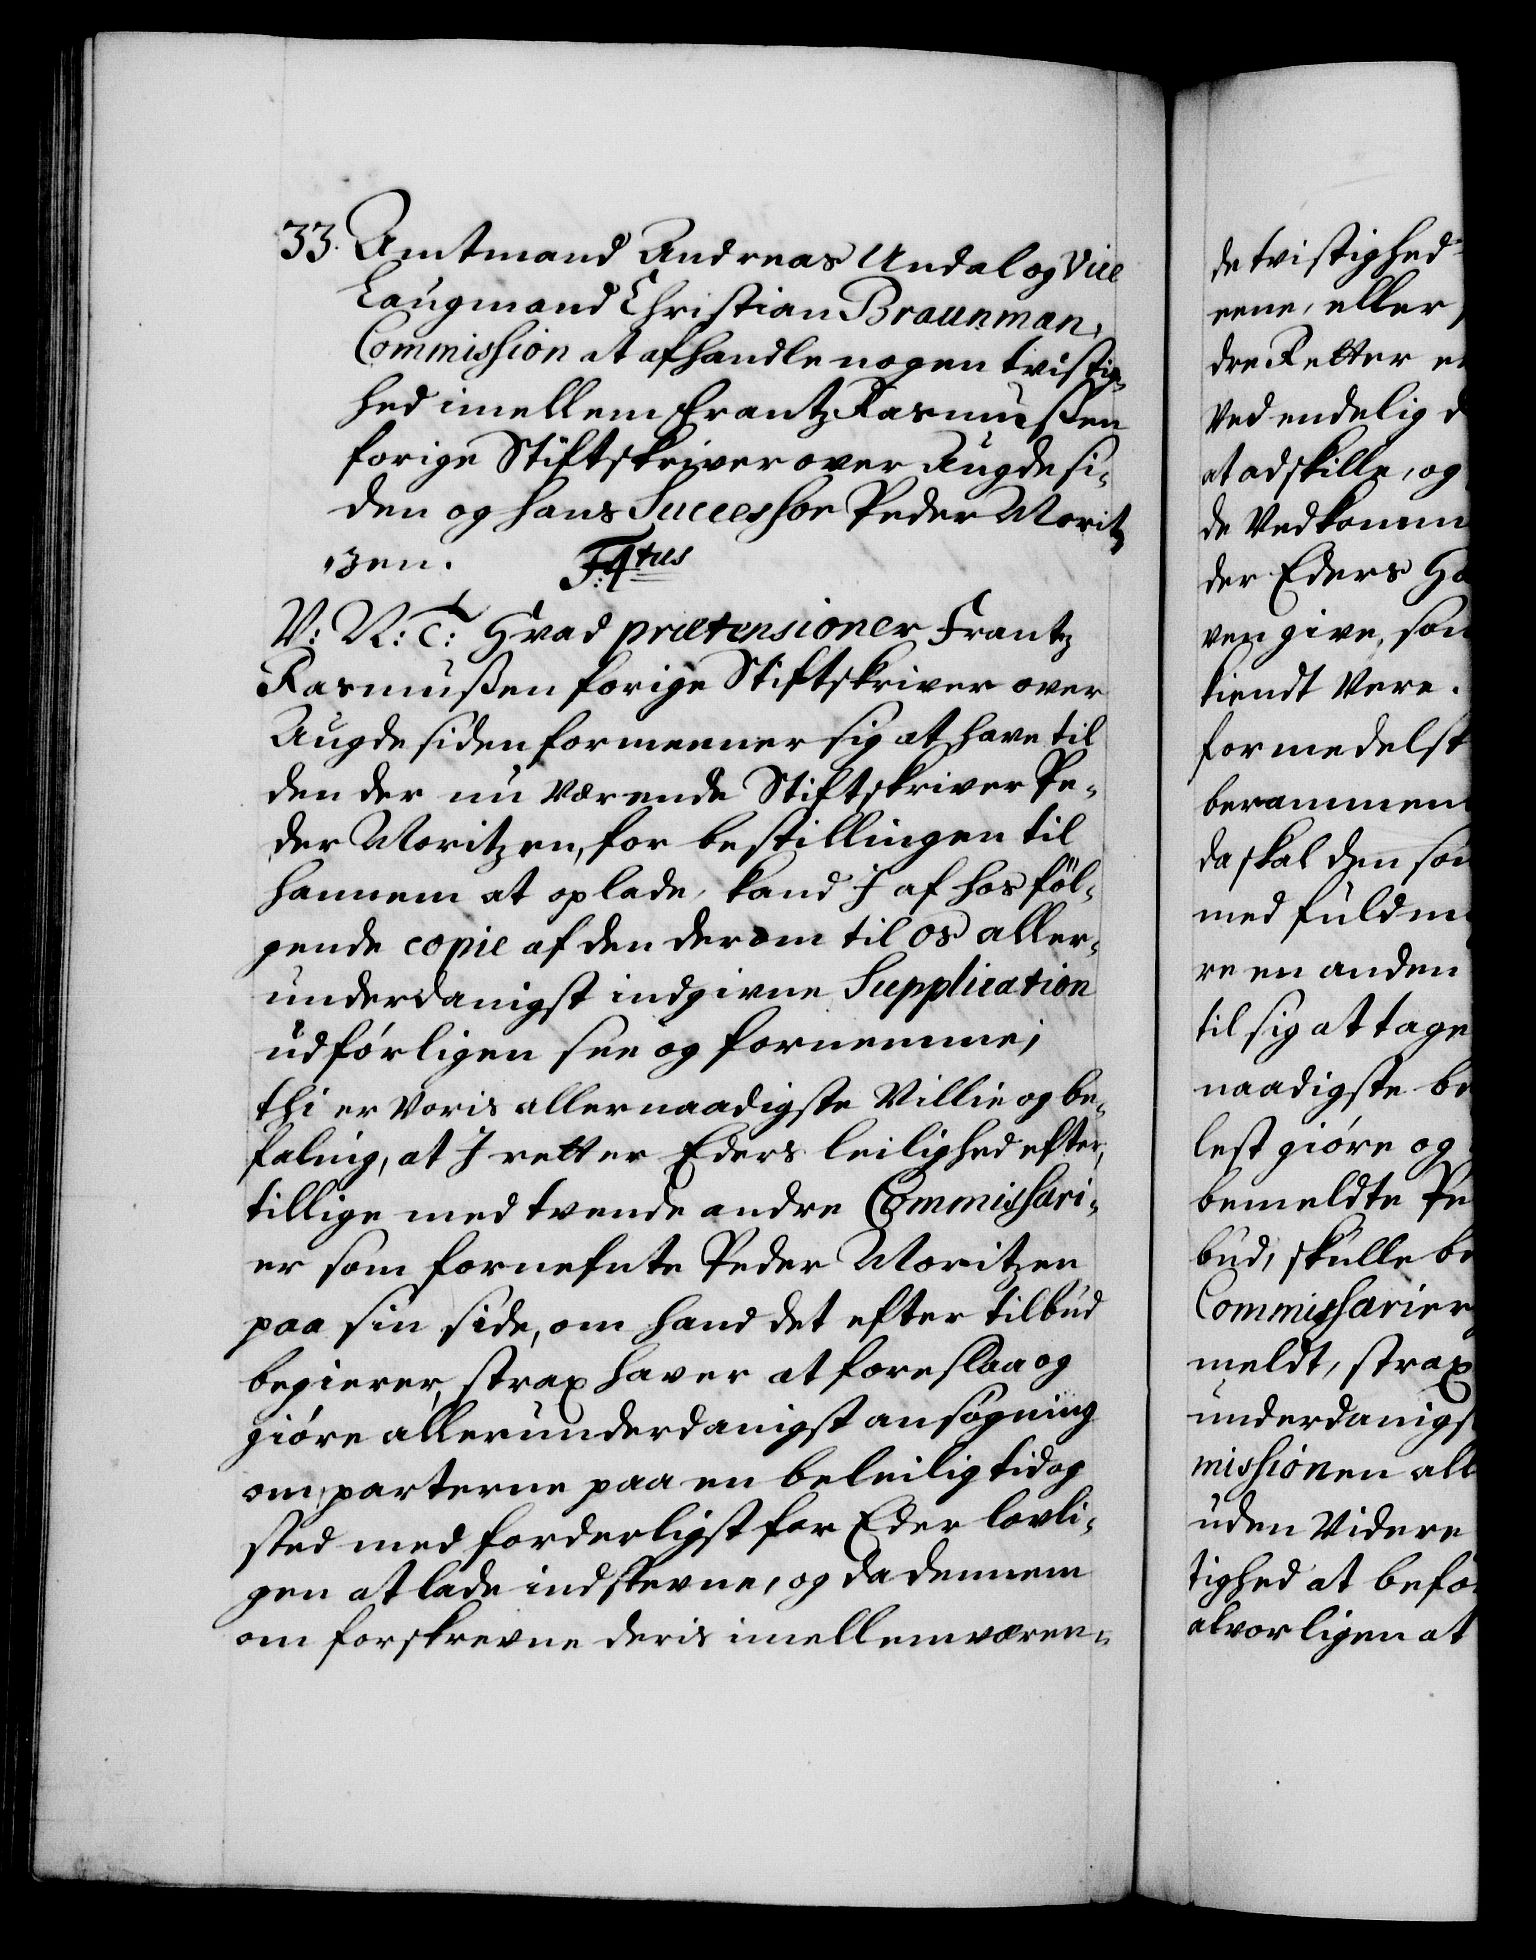 33. Amtmand Andreas Undal og Vice
Laugmand Christian Braunman,
Commission at afhandle nogen tvistig-
hed imellem Frantz Rasmussen
forige Stiftskriver over Augdesi-
den og hans Successor Peder Moritz
-zen. F. 4tus
V: R: T: Hvad prætensioner Frantz
Rasmussen forige Stiftskriver over
Augdesiden formeener sig at have til
den der nu værende Stiftskriver Pe-
der Moritzen, for bestillingen til
hannem at oplade, kand I af hosføl-
gende copie af den derom til os aller-
underdanigst indgivne Supplication
udførligen see og fornemme;
thi er Voris allernaadigste Villie og be-
faling, at I retter Eders leilighed efter,
tillige med tvende andre Commissari-
er som fornefnte Peder Moritzen
paa sin side, om hand det efter tilbud
begierer, strax haver at foreslaa og
giøre allerunderdanigst ansøgning
om, parterne paa en beleilig tid og
sted med forderligst for Eder lovli-
gen at lade indstevne, og da dennem
om forskrevne deris imellemværen-
de tvistighed-
eene, eller
dre Retter
Ved endelig
at adskille, og
de Vedkomm
der Eders
ver give, som
kiendt Vere.
formedelst
berammen
da skal den som
med fuldm
re en anden
til sig at tage
naadigste be
lest giøre og
bemeldte Pe
bud, skulle be
Commissarier
meldt, strax
underdanigst
missionen all
uden Videre
tighed at befor
alvorligen at